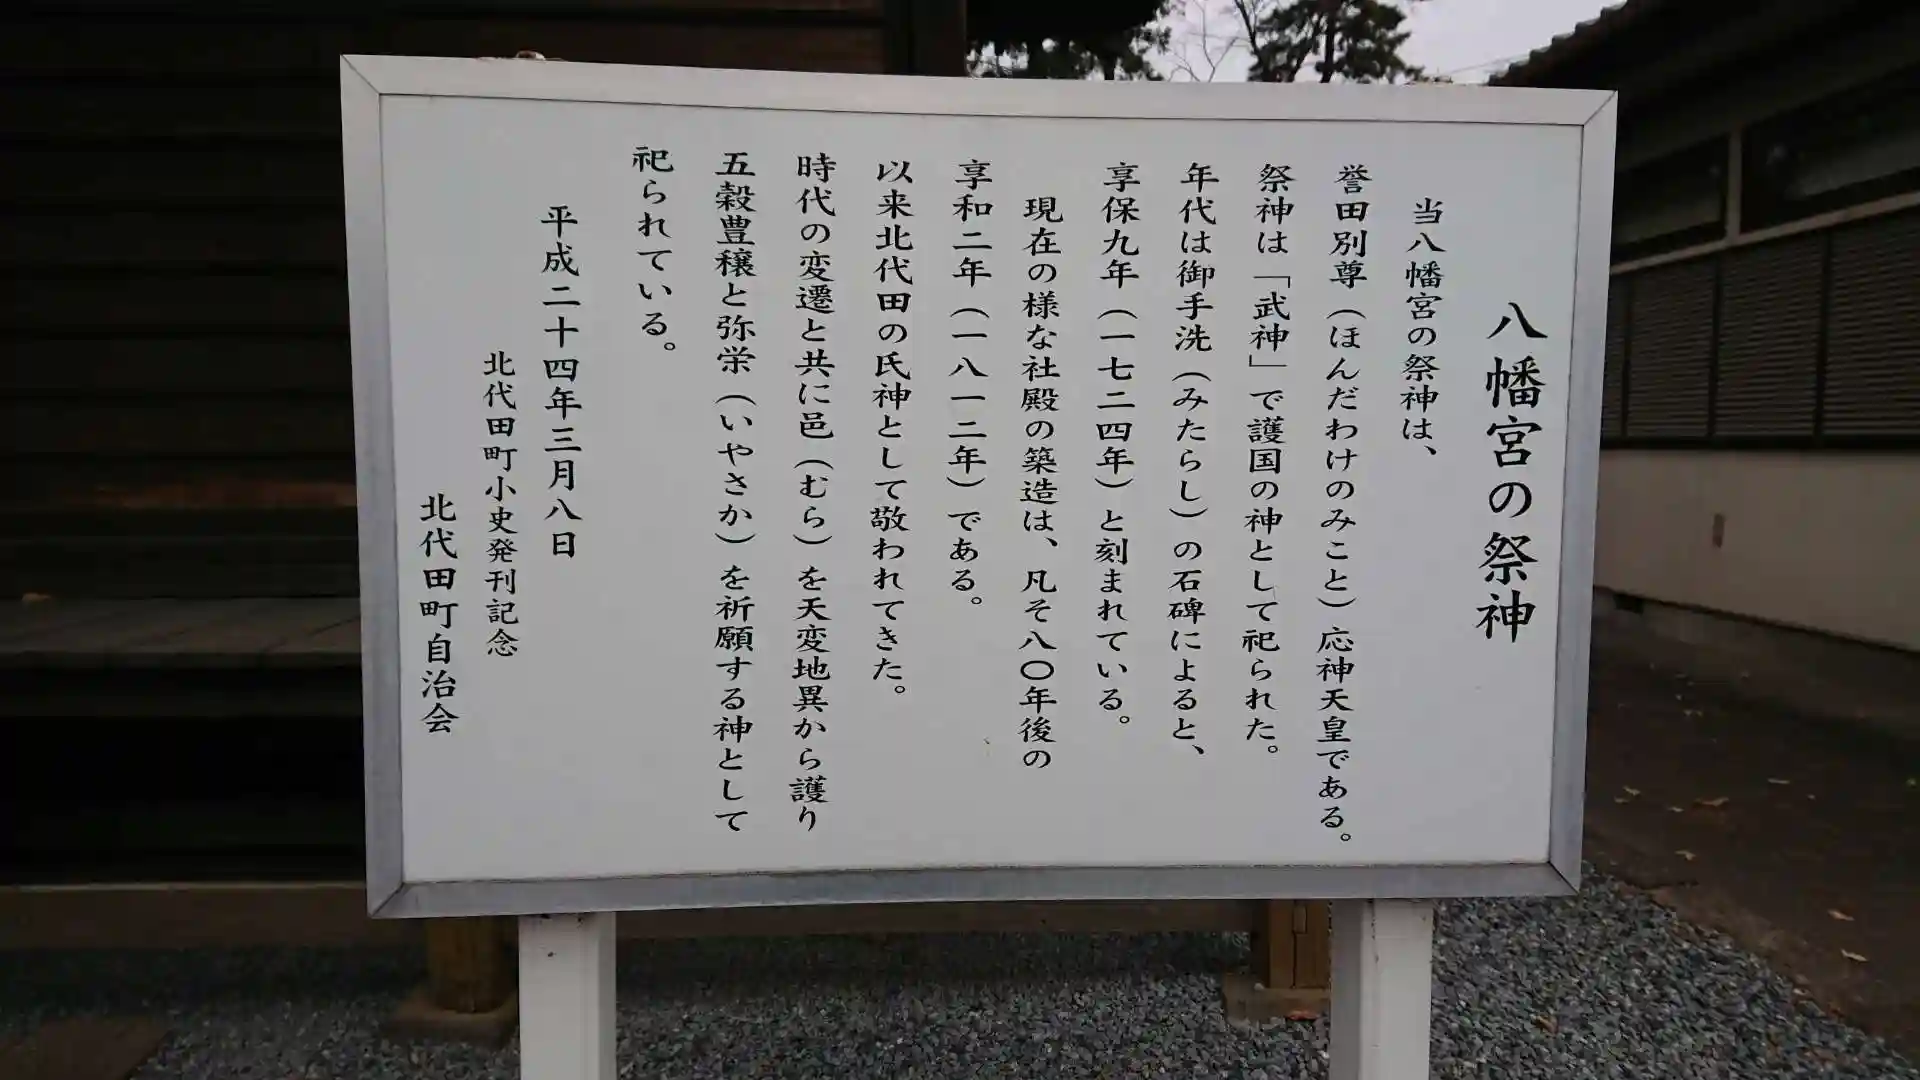 八幡宮の祭神
当八幡宮の祭神は、
誉田別尊（ほんだわけのみこと）応神天皇である。
祭神は「武神」で護国の神として祀られた。
年代は御手洗（みたらし）の石碑によると、
享保九年（一七二四年）と刻まれている。
現在の様な社殿の築造は、凡そ八〇年後の
享和二年（一八一二年）である。
以来北代田の氏神として敬われてきた。
時代の変遷と共に邑（むら）を天変地異から護り
五穀豊穣と弥栄（いやさか）を祈願する神として
祀られている。
平成二十四年三月八日
北代田町小史発刊記念
北代田町自治会